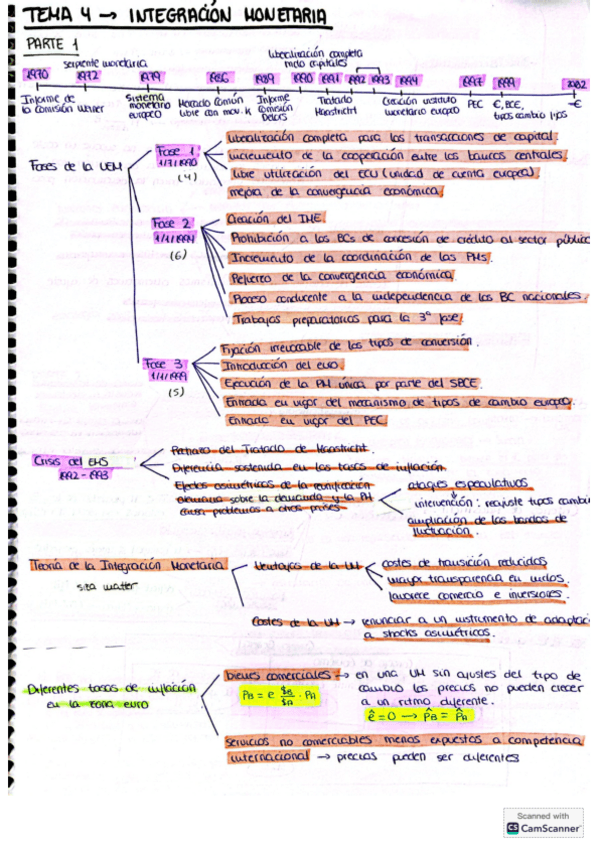 TEMA 4 → INTEGRACIÓN MONETARIA
PARTE 1
serpiente monetaria
liberalización completa
mvto capitales
1970 1972 1979 1986 1989 1990 1991 1992 1993 1994 1997 1999 2002
Informe de la Comisión Werner
Sistema monetario europeo
Mercado Común libre con mov. K
Informe Comisión Delors
Tratado Maastricht
Creación instituto monetario europeo
PEC
€, BCE, tipos cambio fijos
€
Fases de la UEM
Fase 1
1/7/1990
(4)
liberalización completa para las transacciones de capital.
incremento de la cooperación entre los bancos centrales.
libre utilización del ECU (unidad de cuenta europea)
mejora de la convergencia económica.
Fase 2
1/1/1994
(6)
Creación del IME.
Prohibición a los BCs de concesión de crédito al sector públic
Incremento de la coordinación de las PMs.
Refuerzo de la convergencia económica.
Proceso conducente a la independencia de los BC nacionales.
Trabajos preparatorios para la 3º fase.
Fase 3
1/1/1999
(5)
Fijación irrevocable de los tipos de conversión.
Introducción del euro.
Ejecución de la PM única por parte del SBCE.
Entrada en vigor del mecanismo de tipos de cambio europeo.
Entrada en vigor del PEC.
Crisis del EMS
1992-1993
Rechazo del Tratado de Maastricht.
Diferencia sostenida en las tasas de inflación.
Efectos asimétricos de la reunificación
alemana sobre la demanda y la PM
crean problemas a otros países
ataques especulativos
intervención: reajuste tipos cambi
ampliación de las bandas de
fluctuación.
Teoría de la Integración Monetaria
Ventajas de la UM
costes de transición reducidos
mayor transparencia en mdos.
favorece comercio e inversiones.
Costes de la UM → renunciar a un instrumento de adaptaci
a shocks asimétricos.
Diferentes tasas de inflación
en la zona euro
bienes comerciales → en una UM sin ajustes del tipo de
cambio los precios no pueden crecer
a un ritmo diferente.
ê=0 → P̂B = P̂A
servicios no comerciables menos expuestos a competencia
internacional → precios pueden ser diferentes
Scanned with
CS CamScanner